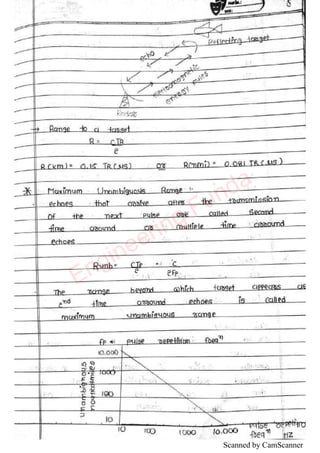 Reflecting target
echo
electromagnetic
energy pulses
Radar
→ Range to a target
R = CTR
2
R(km) = 0.15 TR(μs) OR R(nmi) = 0.081 TR(μs)
* Maximum Unambiguous Range :-
echoes that arrive after the transmission
of the next pulse are called second
time around or multiple time around
echoes
Runb = CTP = C
2 2fP
The range beyond which target appears as
2nd time around echoes is called
maximum unambiguous range
fP = pulse repetition freqn
10.000
1000
100
10
unambiguous
nauticalmiles
10 100 1000 10.000
pulse repetitio
freqn HZ
Engineering Funda
Scanned by CamScanner